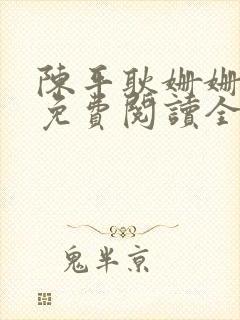 陳平耿姍姍
免費閱讀全
鬼半京